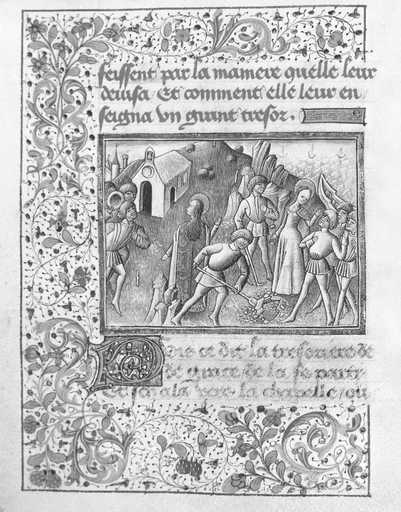 feissent par la maniere quelle leur
devisa Et comment elle leur en
seigna vn grant tresor.
ce dit la tresoriere de
de grace de la se parti
Et sen ala vers la chapelle ou